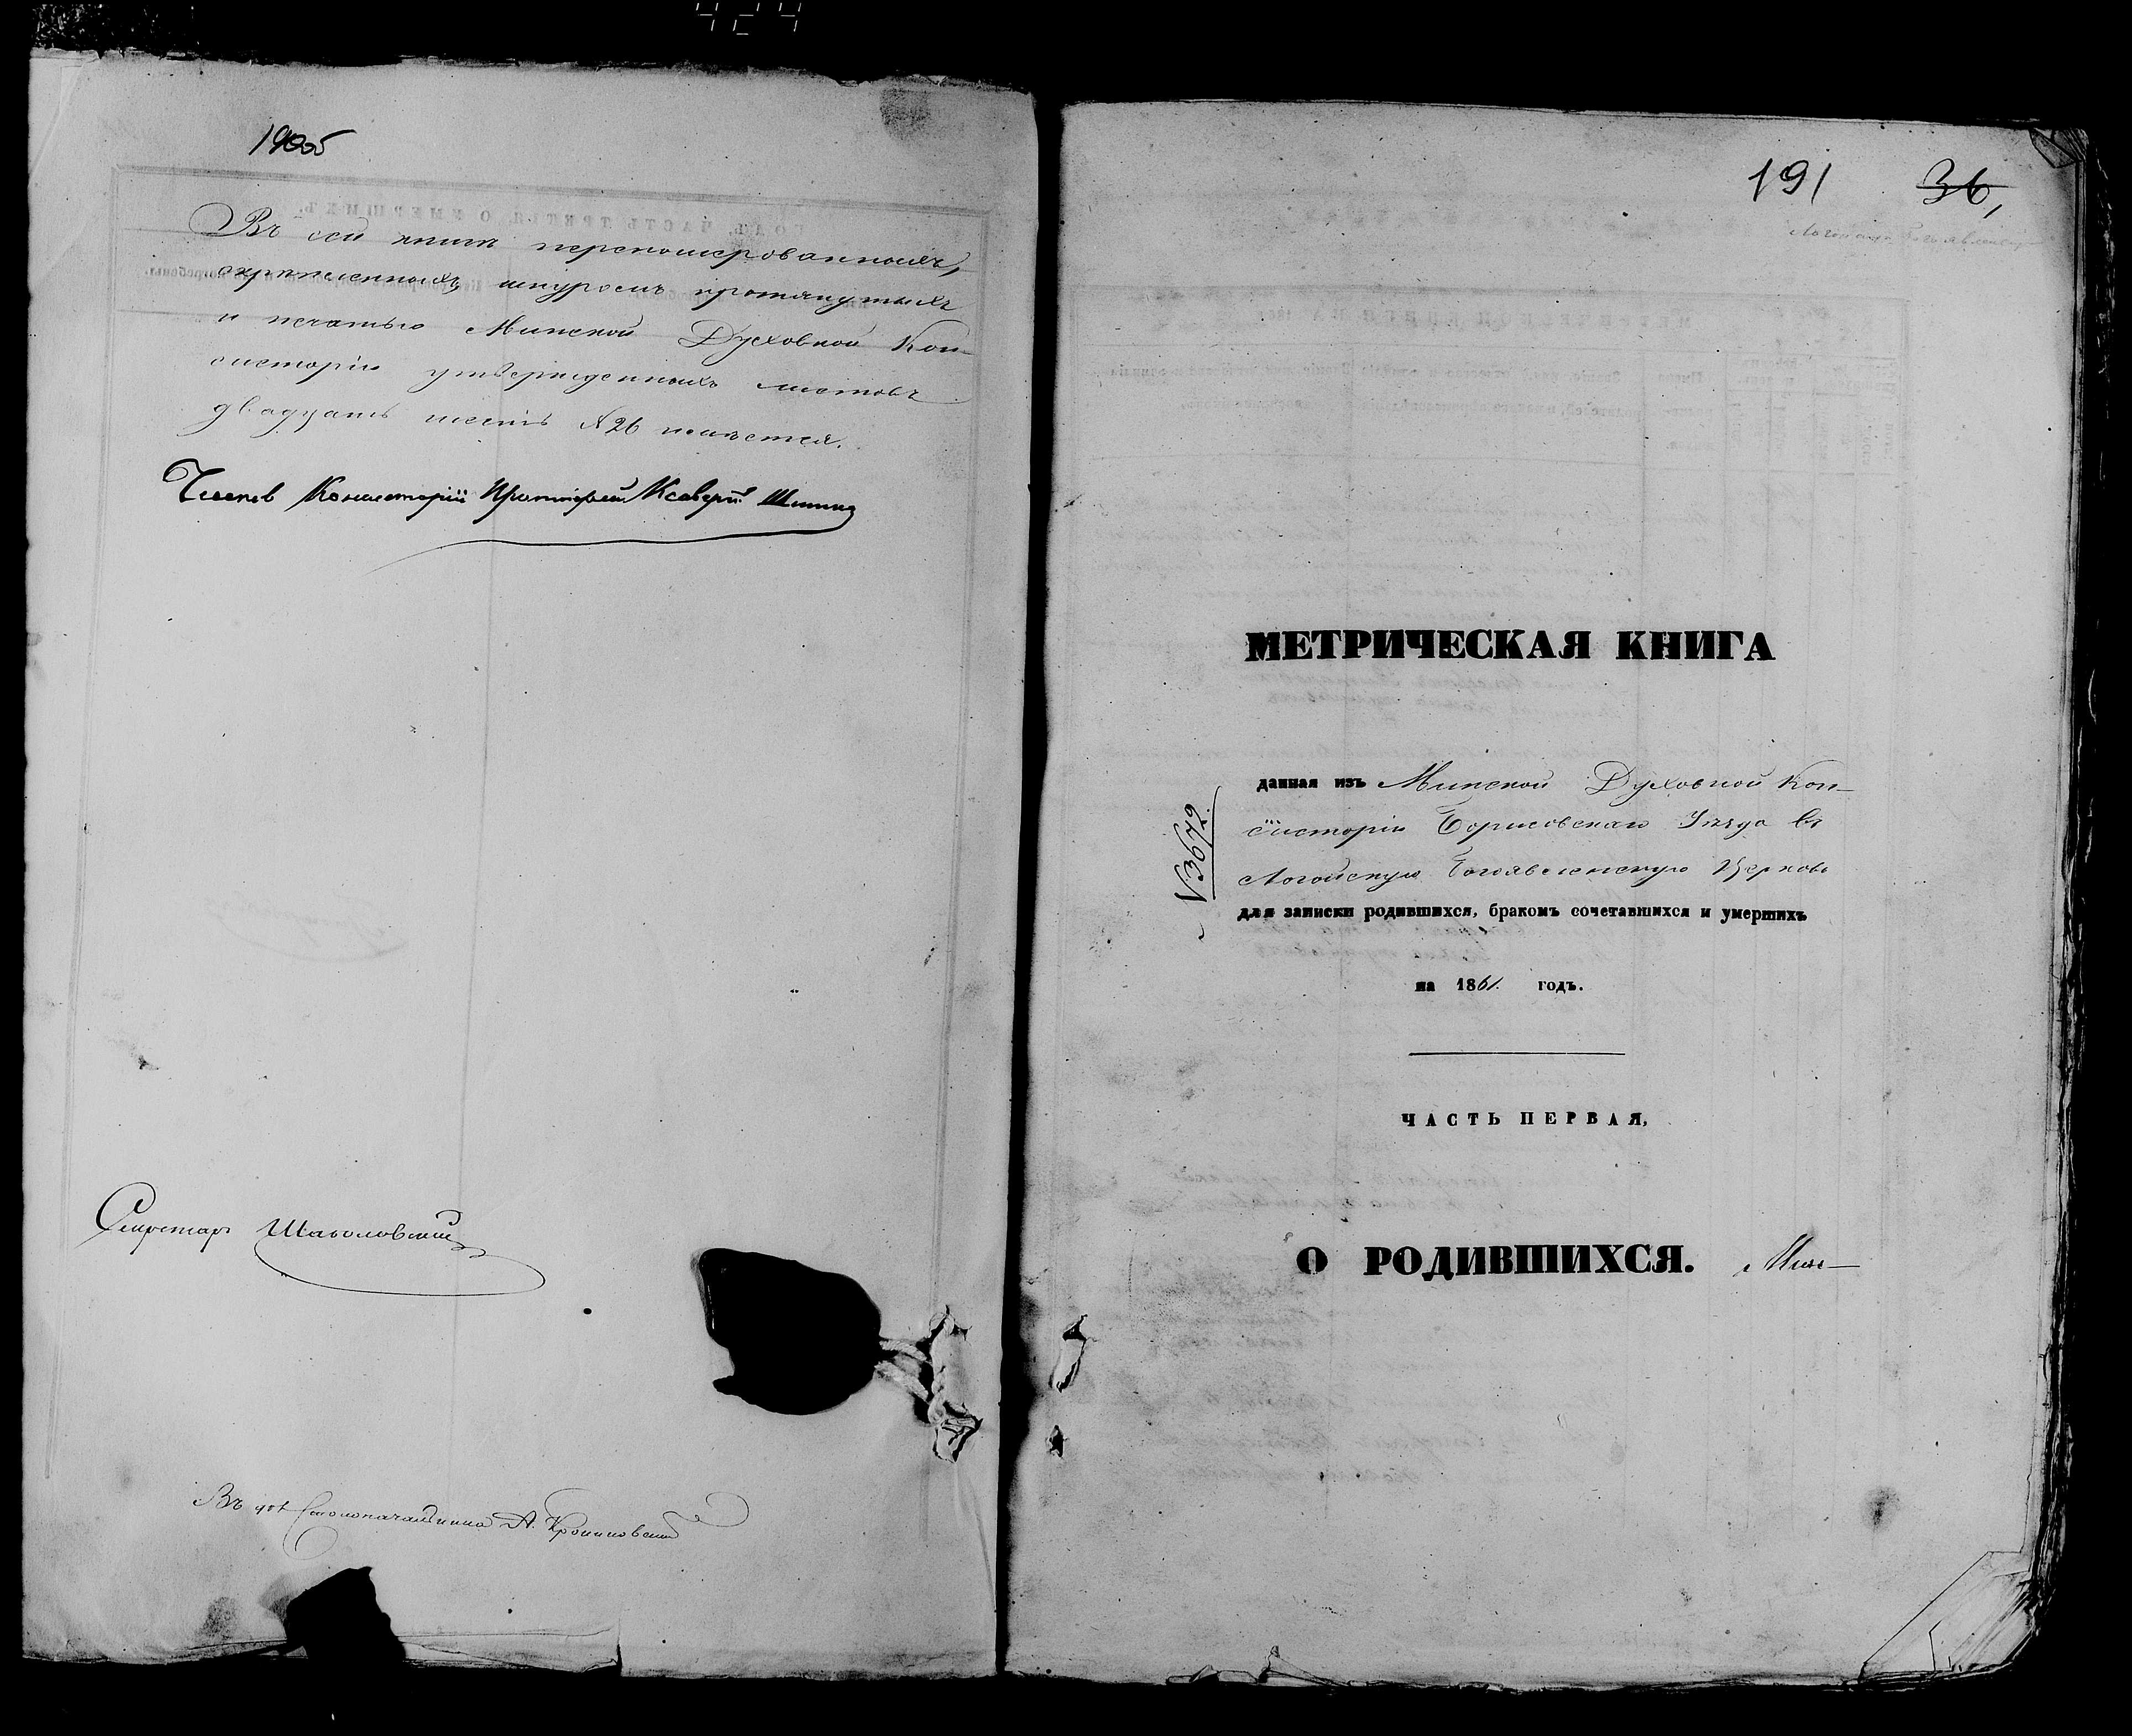 424
190об
Въ сей книгѣ перенумерованныхъ,
скрѣпленныхъ, шнуромъ протянутыхъ
и печатью Минской Духовной Кон-
систоріи утвержденныхъ листовъ
двадцать шесть № 26 имѣется.
Членъ Консисторіи Протоіерей Ксаверій
Секретарь
Въ дол. Столоначальника А.
191 36,
МЕТРИЧЕСКАЯ КНИГА
данная изъ Минской Духовной Кон-
систоріи Борисовскаго Уѣзда въ
Логойскую Богоявленскую Церковь
№ 3672
для записки родившихся, бракомъ сочетавшихся и умершихъ
на 1861. годъ.
ЧАСТЬ ПЕРВАЯ,
О РОДИВШИХСЯ. Мин-